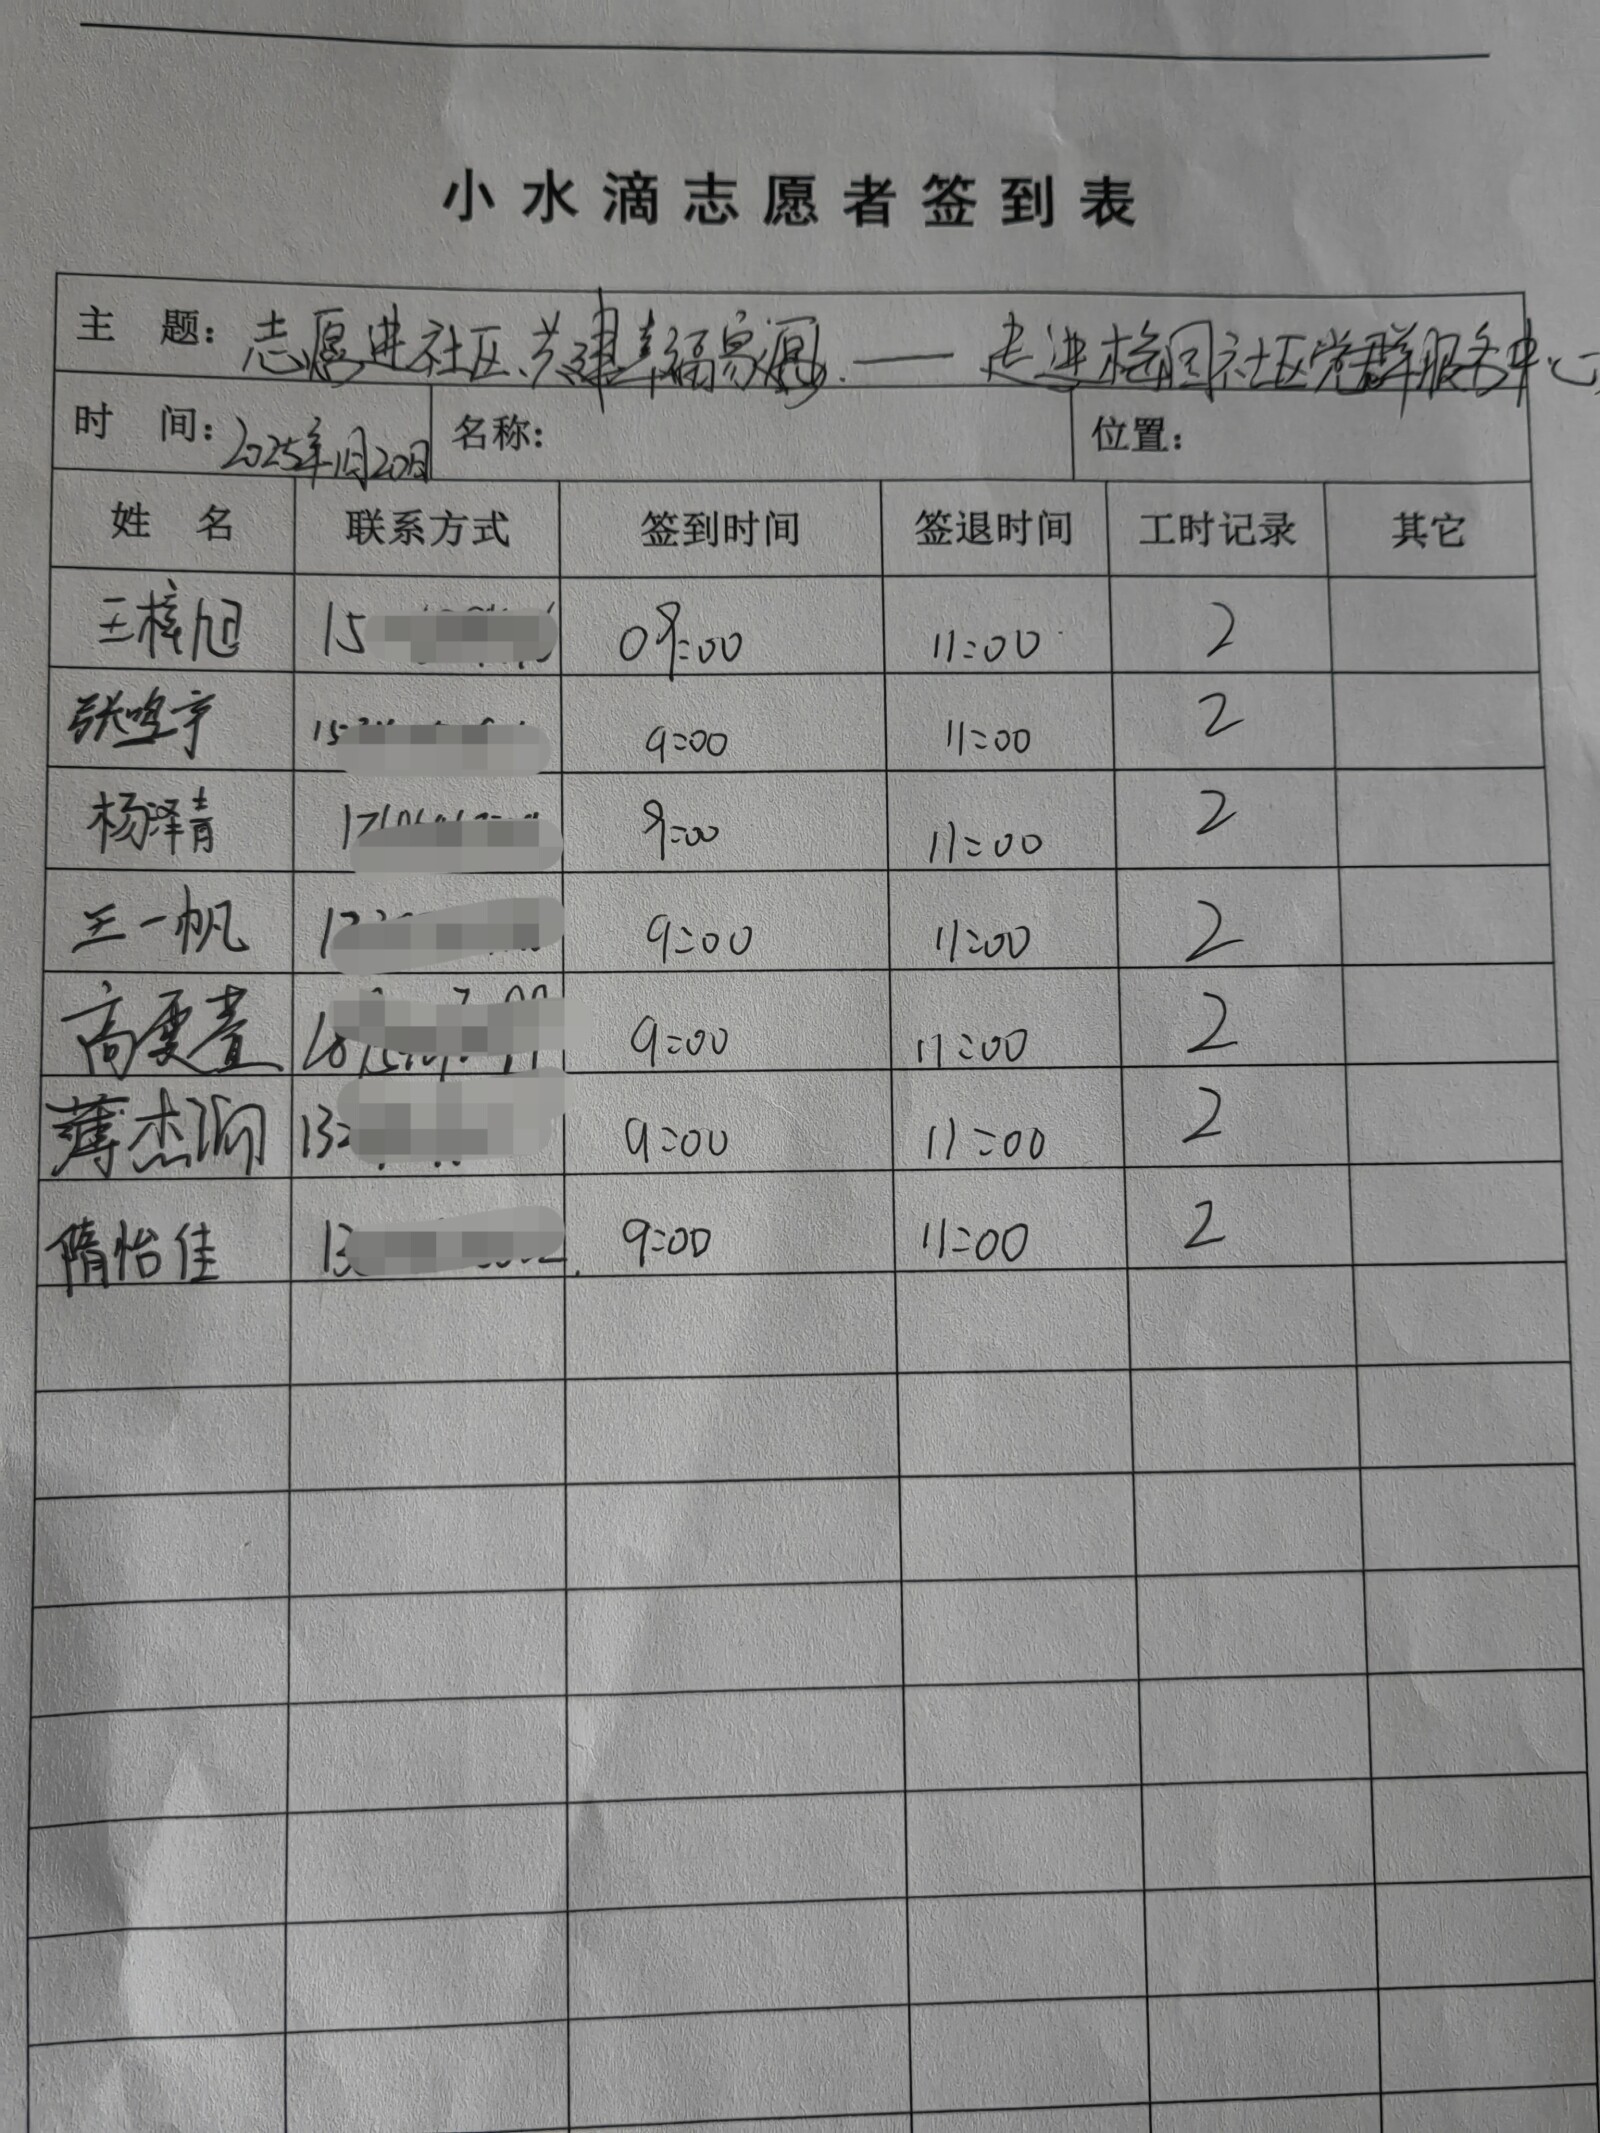 小水滴志愿者签到表
主 题：志愿进社区、共建幸福家源.——走进梅园社区党群服务中心
时 间：2025年1月20日 名称： 位置：
姓 名 联系方式 签到时间 签退时间 工时记录 其它
王梓旭 15 09:00 11:00 2
张鸣宇 15 9:00 11:00 2
杨泽青 17 9:00 11:00 2
王一帆 17 9:00 11:00 2
高 9:00 11:00 2
薄杰 13 9:00 11:00 2
隋怡佳 13 9:00 11:00 2